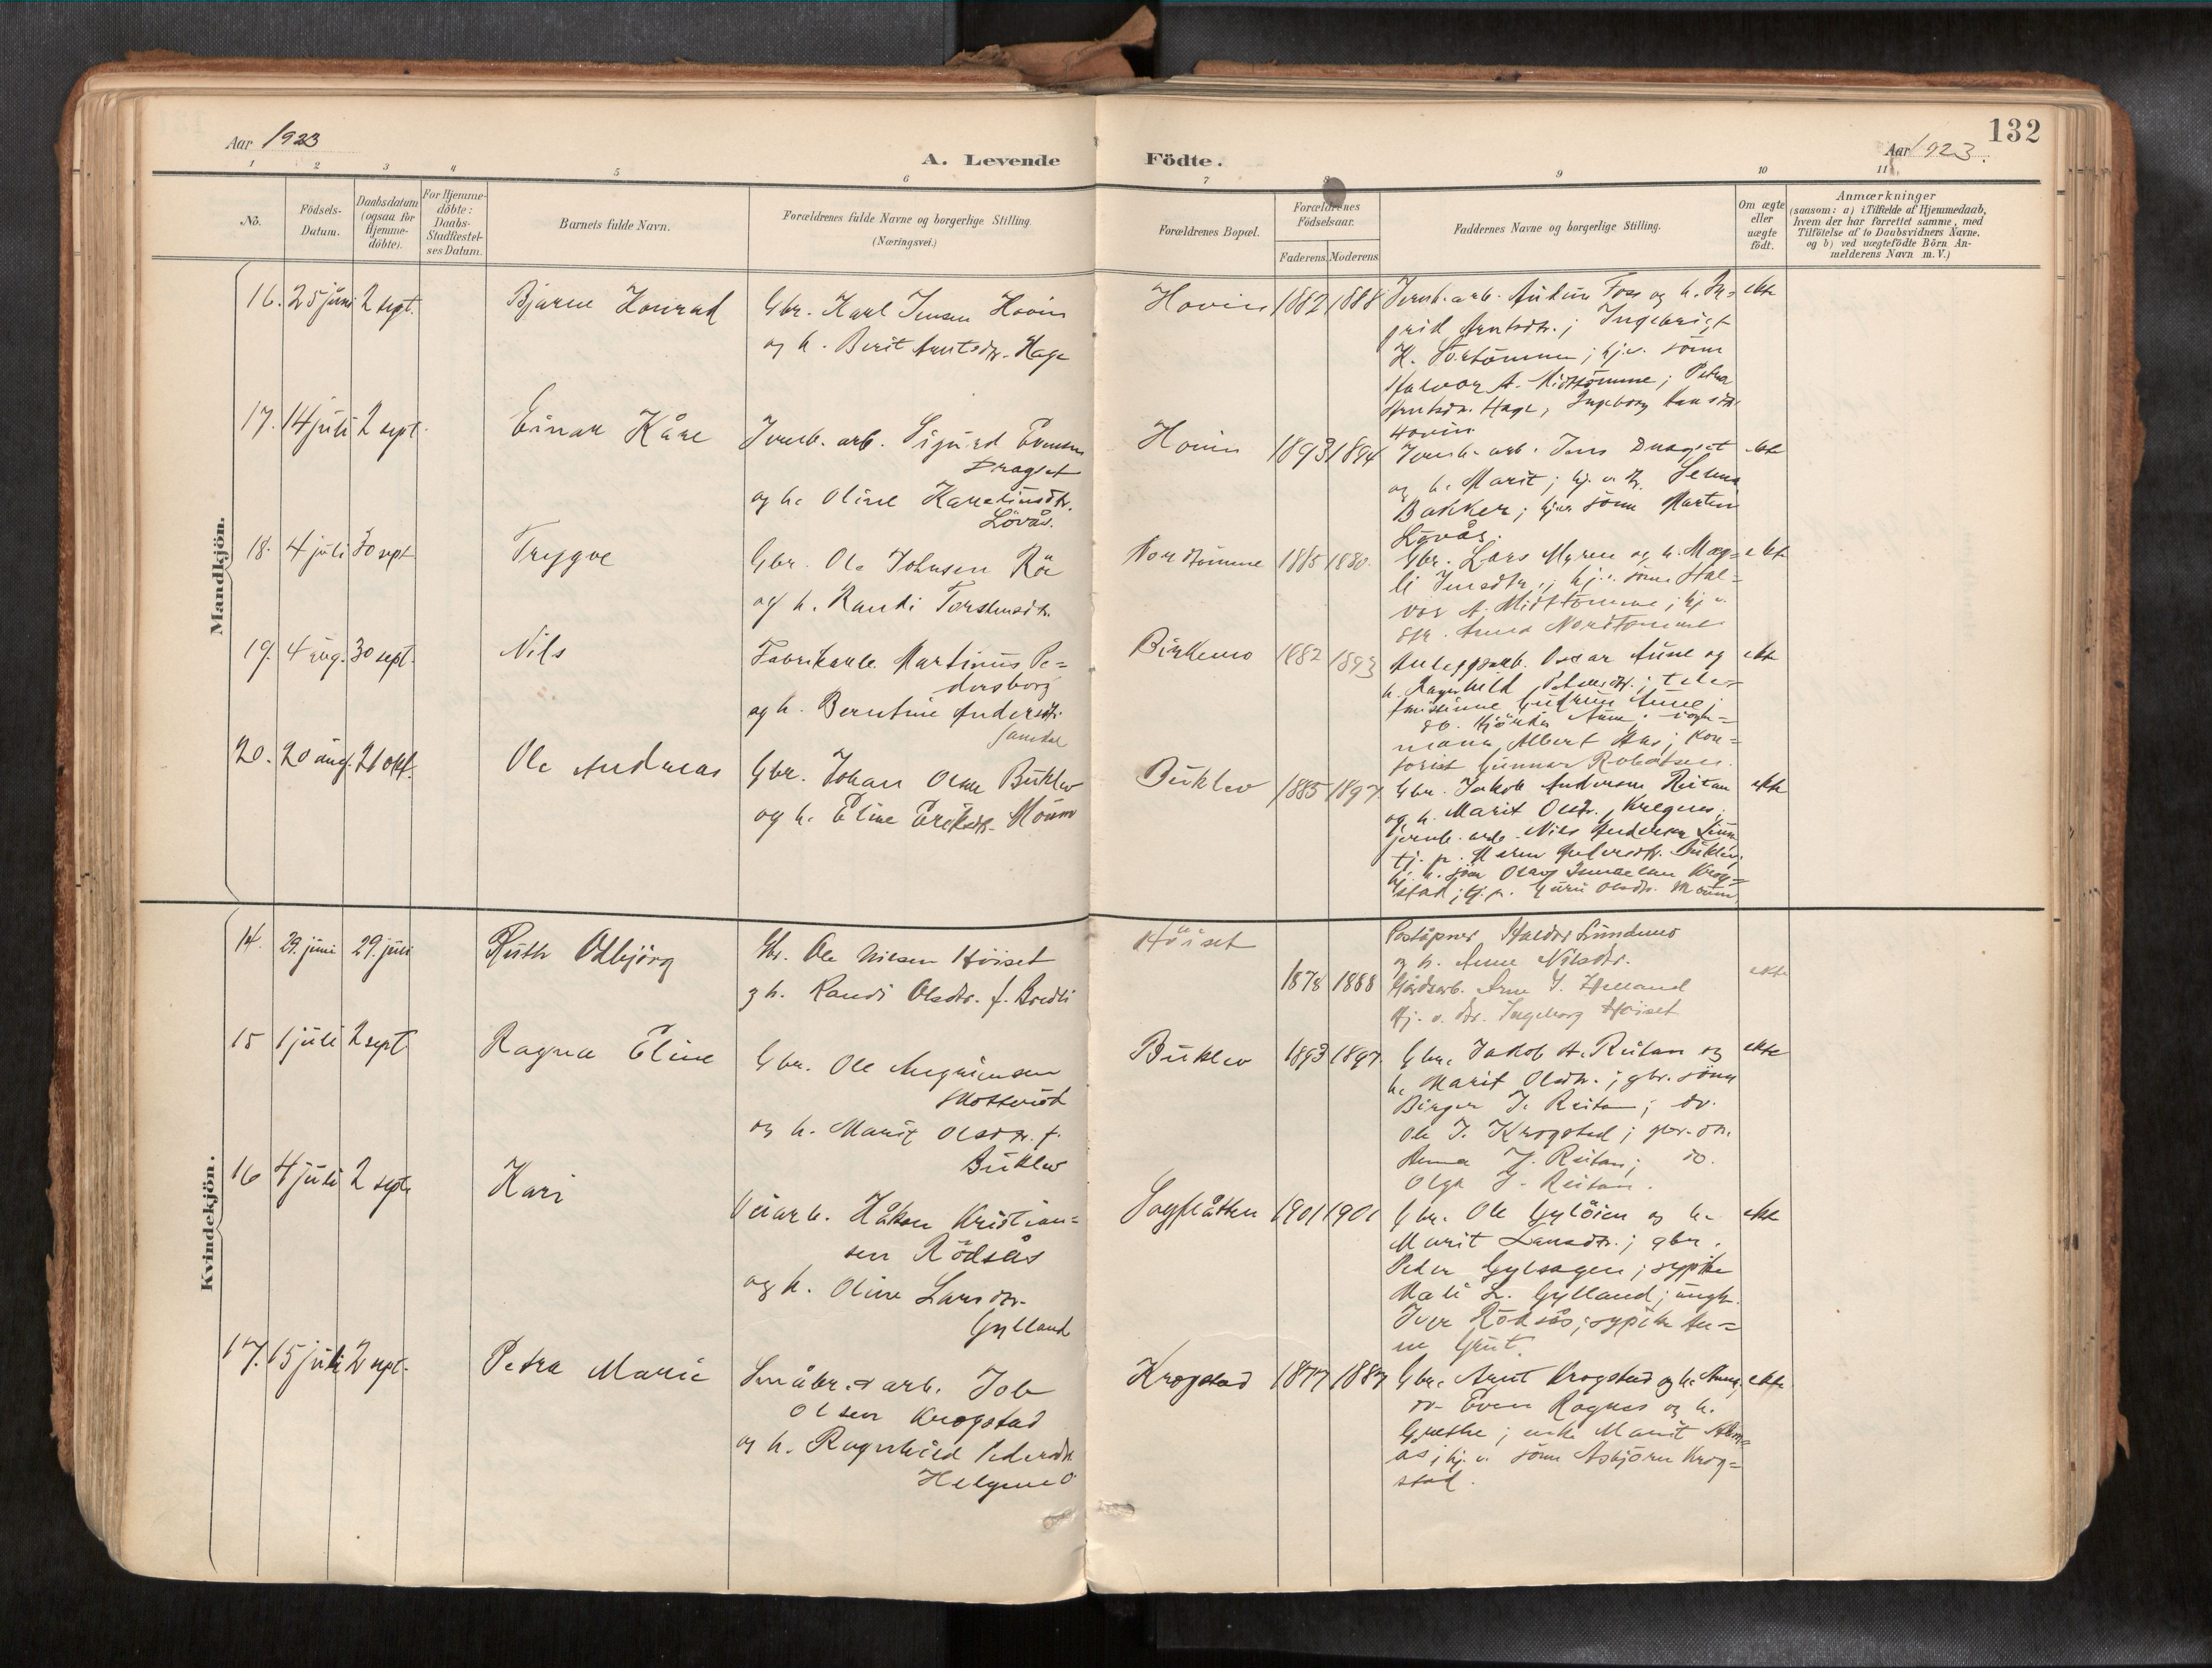 132
Aar 1923
A. Levende
Födte.
Aar 1923.
1 2 3 4 5 6 7 8 9 10 11
No.
Födsels-
Datum.
Daabsdatum
(ogsaa för
Hjemme-
döbte).
For Hjemme-
döbte:
Daabs-
Stadfæstel-
ses Datum.
Barnets fulde Navn.
Forældrenes fulde Navne og borgerlige Stilling.
(Næringsvei.)
Forældrenes Bopæl.
Forældrenes
Födselsaar.
Faderens. Moderens.
Faddernes Navne og borgerlige Stilling.
Om ægte
eller
uægte
födt.
Anmærkninger
(saasom: a) i Tilfælde af Hjemmedaab,
hvem der har forrettet samme, med
Tilföielse af to Daabsvidners Navne,
og b) ved uægtefödte Börn An-
melderens Navn m. V.)
Mandkjön.
16. 25 juni 2 sept.
Bjarne Konrad
Gbr. Karl Jensen Hovin
og h. Berit Arntsdtr. Hage
Hovin
1882 1888
Jernb. arb. Anton Foss og h. In-
grid Arntsdtr.; Ingebrigt
K. Törtömme; hj.v. sönn
Halvor A. Midttömme; Petra
Arntsdtr. Hage, Ingeborg Hansdtr.
Hovin.
ekte
17. 14 juli 2 sept.
Einar Kåre
Jernb. arb. Sigurd Evensen
Dragset
og h. Oline Karelinusdtr.
Lövås.
Hovin
1893 1894
Jernb. arb. Jens Dragset
og h. Marit; hj. v. dtr. Selma
Bakker; hjv. sönn Martin
Lövås.
ekte
18. 4 juli 30 sept
Trygve
Gbr. Ole Johnsen Rö
og h. Randi Torstensdtr.
Nordtömme
1885 1880.
Gbr. Lars Myren og h. Mag-
li Jensdtr.; hj.v. sönn Hal-
vor A. Midttömme; hj v.
dtr. Anna Nordtömme
ekte
19. 4 aug. 30 sept.
Nils
Fabrikarb. Martinus Pe-
dersborg
og h. Berntine Andersdtr.
Birkemo
1882 1893
Anleggsarb. Oscar Aune og
h. Ragnhild Petersdtr.; tele-
fonistinne Gudrun Aune;
do. Hjördis Aune; vogn-
mann Albert Aas; kon-
torist Gunnar Robertsen.
ekte
20. 20 aug. 21 okt.
Ole Andreas
Gbr. Johan Olsen Buklev
og h. Eline Eriksdtr. Moum
Buklev
1885 1897
Gbr. Jakob Andersen Reitan
og h. Marit Olsdtr., Kregnes;
jernb. arb. Nils Andersen
tj. p. Maren Andersdtr. Buklev;
hj. h. sön Olav Ismaelsen Krog-
stad; tj. p. Guru Olsdtr. Moum.
ekte
Kvindekjön.
14. 29. juni 29. juli
Ruth Oddbjörg
Gbr. Ole Nilsen Höiset
og h. Randi Olsdtr. f. Bredli
Höiset
1878 1888
Poståpner Haldor Lundemo
og h. Anne Nilsdtr.
Gårdsarb. Arne J. Helland
Hj. v. dtr. Ingeborg Höiset
ekte
15 1 juli 2 sept
Ragna Eline
Gbr. Ole Angrimsen
Skotterud
og h. Marit Olsdtr. f.
Buklev
Buklev
1893 1897.
Gbr. Jakob A. Reitan og
h. Marit Olsdtr.; gbr. sönn
Birger J. Reitan; do.
Ole J. Krogstad; gbr. dtr.
Anna J. Reitan; do.
Olga J. Reitan.
ekte
16 4 juli 2 sept.
Kari
Veiarb. Håkon Kristian-
sen Rödsås
og h. Oline Larsdtr.
Gylland
Sagflåtten
1901 1901
Gbr. Ole Gylöien og h.
Marit Larsdtr.; gbr.
Peder Gylhagen; sypike
Mali L. Gylland; ungk.
Iver Rödsås; sypike An-
ne Grut.
ekte
17. 15 juli 2 sept.
Petra Marie
Småbr. & arb. Job
Olsen Krogstad
og h. Ragnhild Pedersdtr
Helgemo
Krogstad
1877 1887
Gbr. Arnt Krogstad og h. Anna;
do. Even Ragnes og h.
Grethe; enke Marit Alm-
ås; hj. v. sönn Asbjörn Krog-
stad.
ekte